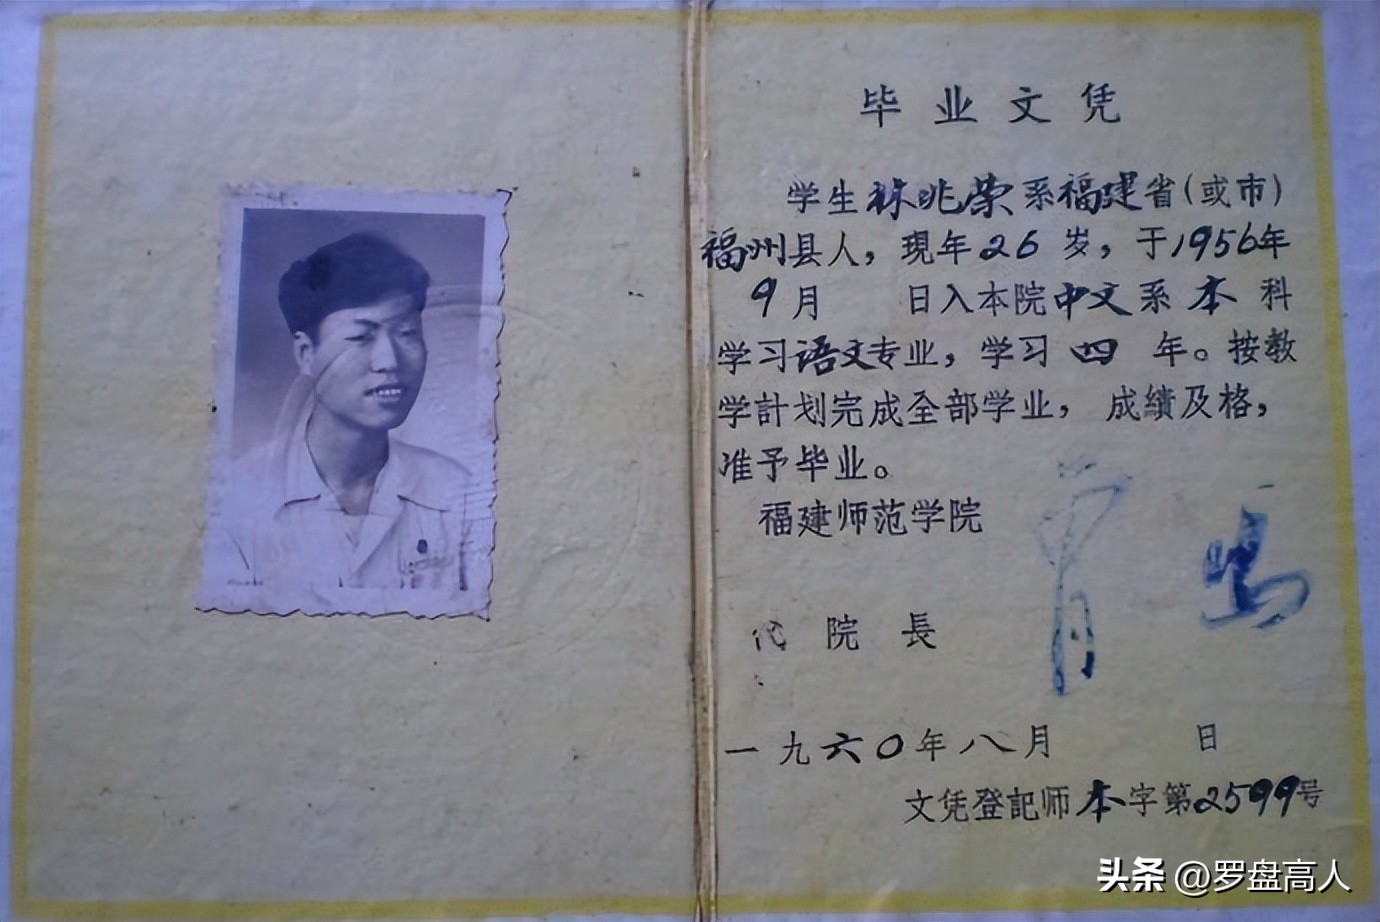 毕业文凭
学生林兆荣系福建省(或市)
福州县人，現年26岁，于1956年
9月 日入本院中文系本科
学习语文专业，学习四年。按教
学計划完成全部学业，成績及格，
准予毕业。
福建师范学院
代院長
一九六〇年八月 日
文凭登記师本字第2599号
头条@罗盘高人